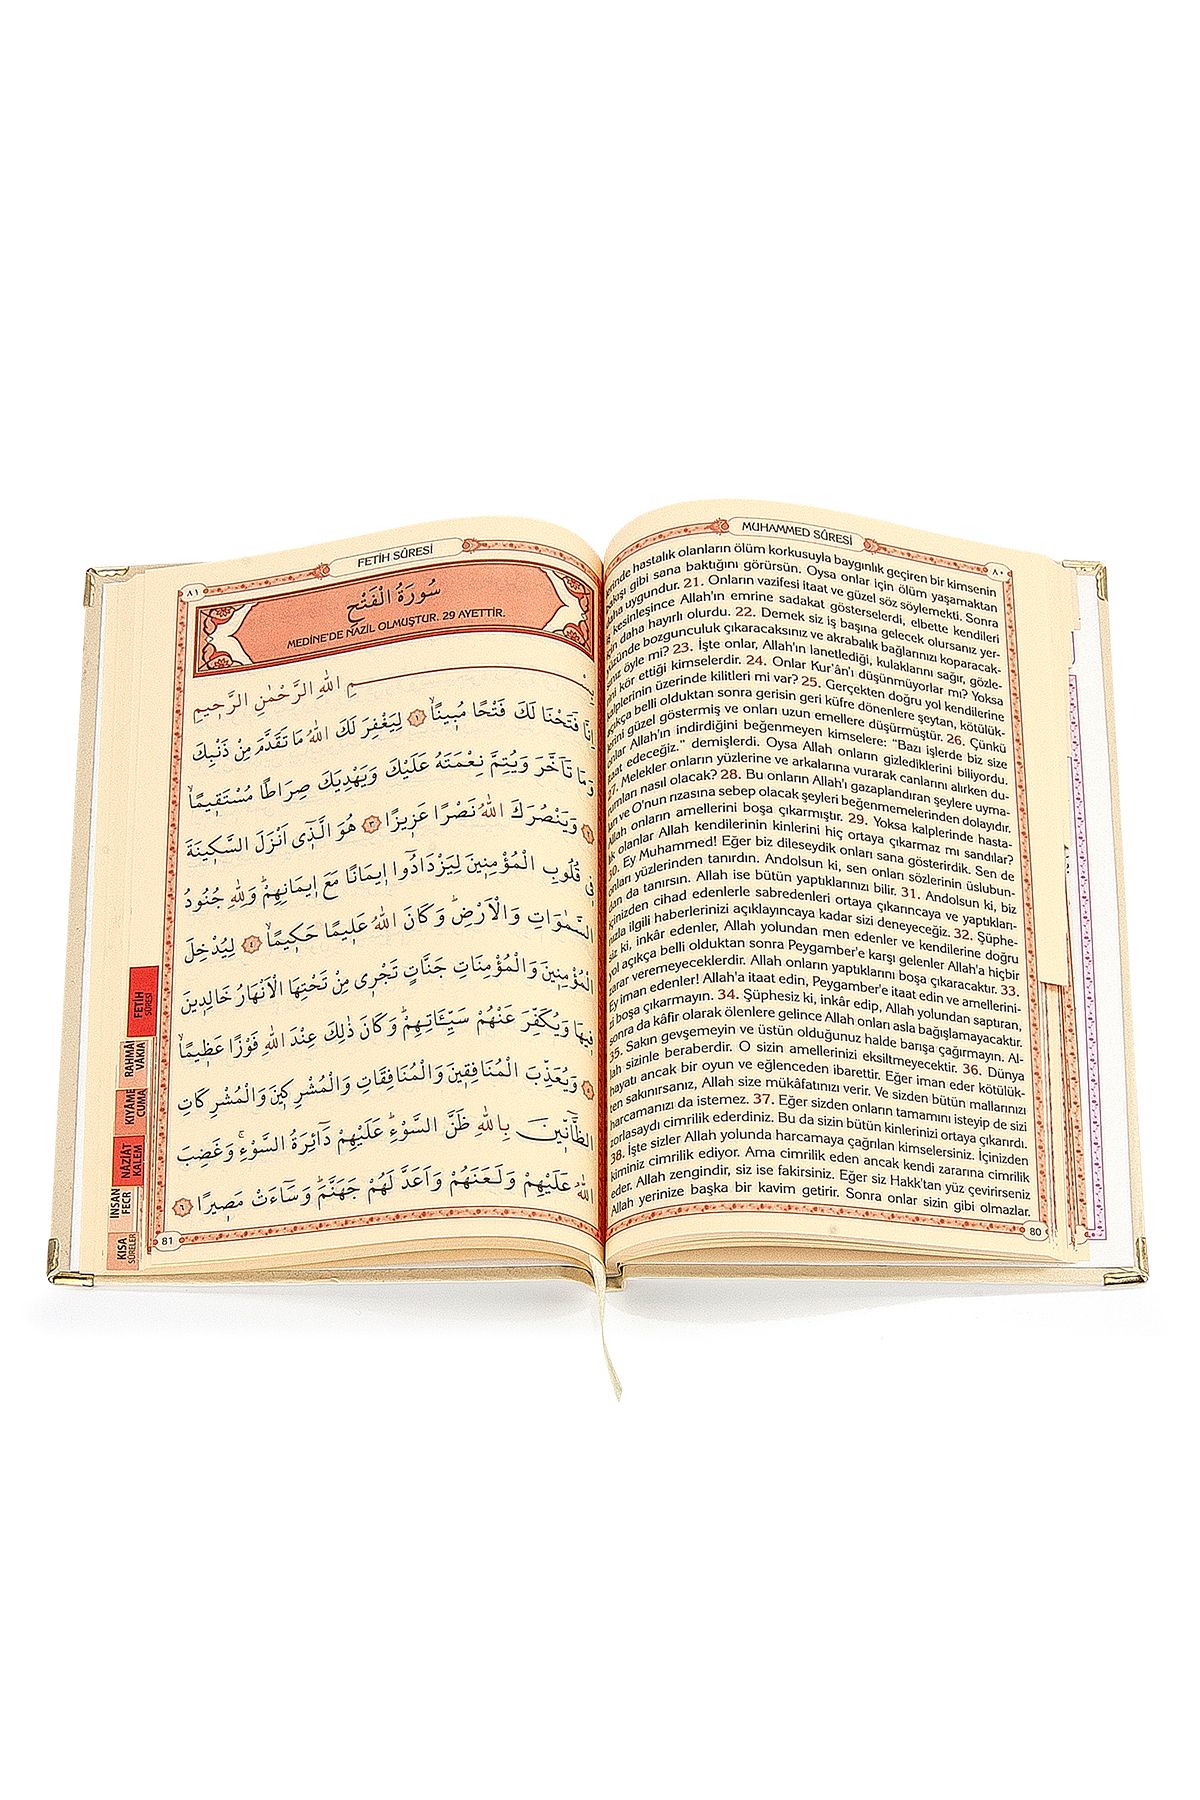 MUHAMMED SÛRESİ
٨٠
hastalık olanların ölüm korkusuyla baygınlık geçiren bir kimsenin
gibi sana baktığını görürsün. Oysa onlar için ölüm yaşamaktan
uygundur. 21. Onların vazifesi itaat ve güzel söz söylemekti. Sonra
kesinleşince Allah'ın emrine sadakat gösterselerdi, elbette kendileri
için daha hayırlı olurdu. 22. Demek siz iş başına gelecek olursanız yer-
yüzünde bozgunculuk çıkaracaksınız ve akrabalık bağlarınızı koparacak-
sınız öyle mi? 23. İşte onlar, Allah'ın lanetlediği, kulaklarını sağır, gözle-
rini kör ettiği kimselerdir. 24. Onlar Kur'ân'ı düşünmüyorlar mı? Yoksa
kalplerinin üzerinde kilitleri mi var? 25. Gerçekten doğru yol kendilerine
açıkça belli olduktan sonra gerisin geri küfre dönenlere şeytan, kötülük-
lerini güzel göstermiş ve onları uzun emellere düşürmüştür. 26. Çünkü
onlar Allah'ın indirdiğini beğenmeyen kimselere: "Bazı işlerde biz size
itaat edeceğiz." demişlerdi. Oysa Allah onların gizlediklerini biliyordu.
27. Melekler onların yüzlerine ve arkalarına vurarak canlarını alırken du-
rumları nasıl olacak? 28. Bu onların Allah'ı gazaplandıran şeylere uyma-
ve O'nun rızasına sebep olacak şeyleri beğenmemelerinden dolayıdır.
Allah onların amellerini boşa çıkarmıştır. 29. Yoksa kalplerinde hasta-
lık olanlar Allah kendilerinin kinlerini hiç ortaya çıkarmaz mı sandılar?
30. Ey Muhammed! Eğer biz dileseydik onları sana gösterirdik. Sen de
onları yüzlerinden tanırdın. Andolsun ki, sen onları sözlerinin üslubun-
dan da tanırsın. Allah ise bütün yaptıklarınızı bilir. 31. Andolsun ki, biz
içinizden cihad edenlerle sabredenleri ortaya çıkarıncaya ve yaptıkları-
nızla ilgili haberlerinizi açıklayıncaya kadar sizi deneyeceğiz. 32. Şüphe-
siz ki, inkâr edenler, Allah yolundan men edenler ve kendilerine doğru
yol açıkça belli olduktan sonra Peygamber'e karşı gelenler Allah'a hiçbir
zarar veremeyeceklerdir. Allah onların yaptıklarını boşa çıkaracaktır. 33.
Ey iman edenler! Allah'a itaat edin, Peygamber'e itaat edin ve amellerini-
zi boşa çıkarmayın. 34. Şüphesiz ki, inkâr edip, Allah yolundan saptıran,
sonra da kâfir olarak ölenlere gelince Allah onları asla bağışlamayacaktır.
35. Sakın gevşemeyin ve üstün olduğunuz halde barışa çağırmayın. Al-
lah sizinle beraberdir. O sizin amellerinizi eksiltmeyecektir. 36. Dünya
hayatı ancak bir oyun ve eğlenceden ibarettir. Eğer iman eder kötülük-
ten sakınırsanız, Allah size mükâfatınızı verir. Ve sizden bütün mallarınızı
harcamanızı da istemez. 37. Eğer sizden onların tamamını isteyip de sizi
zorlasaydı cimrilik ederdiniz. Bu da sizin bütün kinlerinizi ortaya çıkarırdı.
38. İşte sizler Allah yolunda harcamaya çağrılan kimselersiniz. İçinizden
kiminiz cimrilik ediyor. Ama cimrilik eden ancak kendi zararına cimrilik
eder. Allah zengindir, siz ise fakirsiniz. Eğer siz Hakk'tan yüz çevirirseniz
Allah yerinize başka bir kavim getirir. Sonra onlar sizin gibi olmazlar.
80
FETİH SÛRESİ
٨١
سُورَةُ الْفَتْحِ
MEDİNE'DE NAZİL OLMUŞTUR. 29 AYETTİR.
بِسْمِ اللّٰهِ الرَّحْمٰنِ الرَّحٖيمِ
اِنَّا فَتَحْنَا لَكَ فَتْحًا مُبٖينًاۙ ﴿١﴾ لِيَغْفِرَ لَكَ اللّٰهُ مَا تَقَدَّمَ مِنْ ذَنْبِكَ
وَمَا تَاَخَّرَ وَيُتِمَّ نِعْمَتَهُ عَلَيْكَ وَيَهْدِيَكَ صِرَاطًا مُسْتَقٖيمًاۙ
﴿٢﴾ وَيَنْصُرَكَ اللّٰهُ نَصْرًا عَزٖيزًا ﴿٣﴾ هُوَ الَّذٖٓى اَنْزَلَ السَّكٖينَةَ
فٖى قُلُوبِ الْمُؤْمِنٖينَ لِيَزْدَادُٓوا اٖيمَانًا مَعَ اٖيمَانِهِمْؕ وَلِلّٰهِ جُنُودُ
السَّمٰوَاتِ وَالْاَرْضِؕ وَكَانَ اللّٰهُ عَلٖيمًا حَكٖيمًاۙ ﴿٤﴾ لِيُدْخِلَ
الْمُؤْمِنٖينَ وَالْمُؤْمِنَاتِ جَنَّاتٍ تَجْرٖى مِنْ تَحْتِهَا الْاَنْهَارُ خَالِدٖينَ
فٖيهَا وَيُكَفِّرَ عَنْهُمْ سَيِّـَٔاتِهِمْؕ وَكَانَ ذٰلِكَ عِنْدَ اللّٰهِ فَوْزًا عَظٖيمًاۙ
﴿٥﴾ وَيُعَذِّبَ الْمُنَافِقٖينَ وَالْمُنَافِقَاتِ وَالْمُشْرِكٖينَ وَالْمُشْرِكَاتِ
الظَّٓانّٖينَ بِاللّٰهِ ظَنَّ السَّوْءِؕ عَلَيْهِمْ دَٓائِرَةُ السَّوْءِۚ وَغَضِبَ
اللّٰهُ عَلَيْهِمْ وَلَعَنَهُمْ وَاَعَدَّ لَهُمْ جَهَنَّمَؕ وَسَٓاءَتْ مَصٖيرًا ﴿٦﴾
81
FETİH
SÛRESİ
RAHMÂN
VÂKIA
KIYÂME
CUMA
NÂZİÂT
KALEM
İNSAN
FECR
KISA
SÛRELER